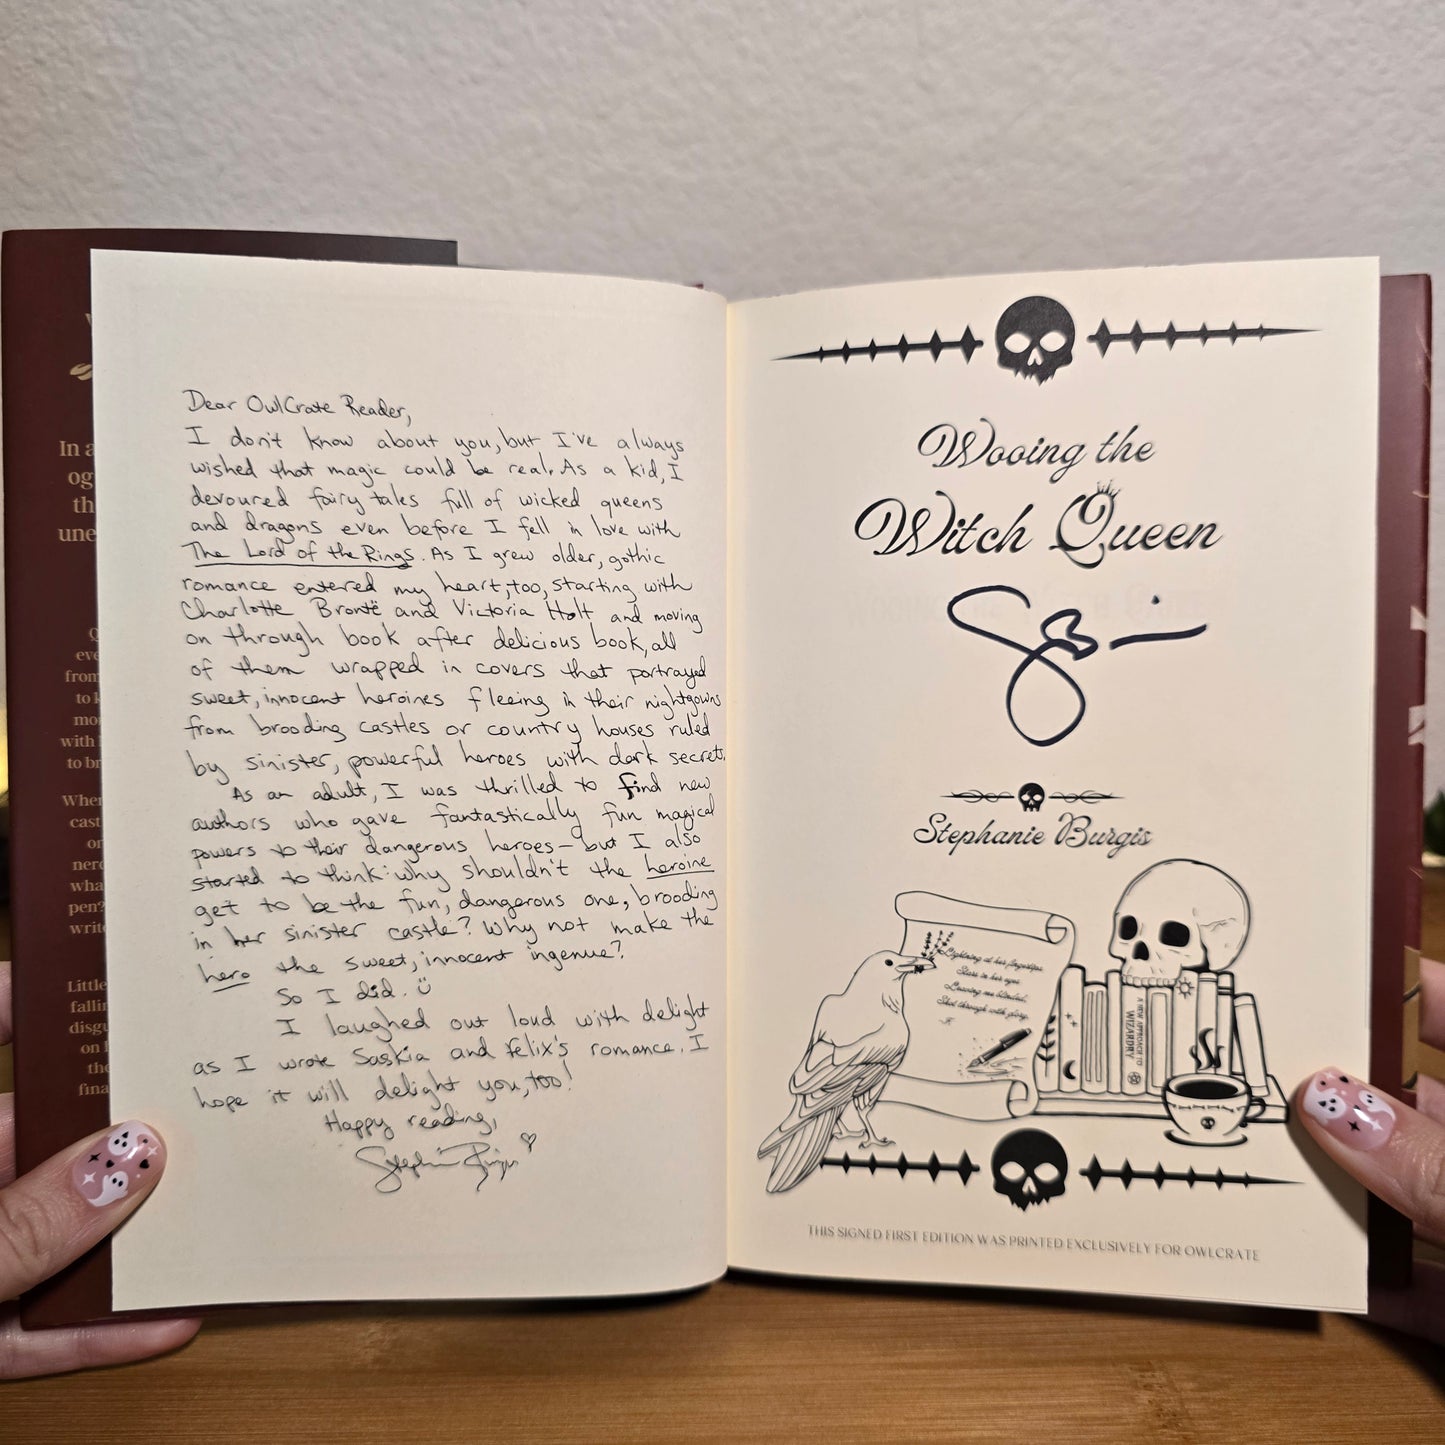 In a
og
th
une
Q
eve
from
to k
mo
with
to br
When
cast
o
nerd
wha
pen?
write
Little
fallin
disgu
on
the
fina
Dear OwlCrate Reader,
I don't know about you, but I've always
wished that magic could be real. As a kid, I
devoured fairy tales full of wicked queens
and dragons even before I fell in love with
The Lord of the Rings. As I grew older, gothic
romance entered my heart, too, starting with
Charlotte Brontë and Victoria Holt and moving
on through book after delicious book, all
of them wrapped in covers that portrayed
sweet, innocent heroines fleeing in their nightgowns
from brooding castles or country houses ruled
by sinister, powerful heroes with dark secrets.
As an adult, I was thrilled to find new
authors who gave fantastically fun magical
powers to their dangerous heroes – but I also
started to think: why shouldn't the heroine
get to be the fun, dangerous one, brooding
in her sinister castle? Why not make the
hero the sweet, innocent ingenue?
So I did. ü
I laughed out loud with delight
as I wrote Saskia and Felix's romance. I
hope it will delight you, too!
Happy reading,
Stephanie Burgis ♡
Wooing the
Witch Queen
Stephanie Burgis
Lightning at her fingertips,
Stars in her eyes
Leaving me blinded,
Shot through with glory.
A NEW APPROACH TO
WIZARDRY
THIS SIGNED FIRST EDITION WAS PRINTED EXCLUSIVELY FOR OWLCRATE